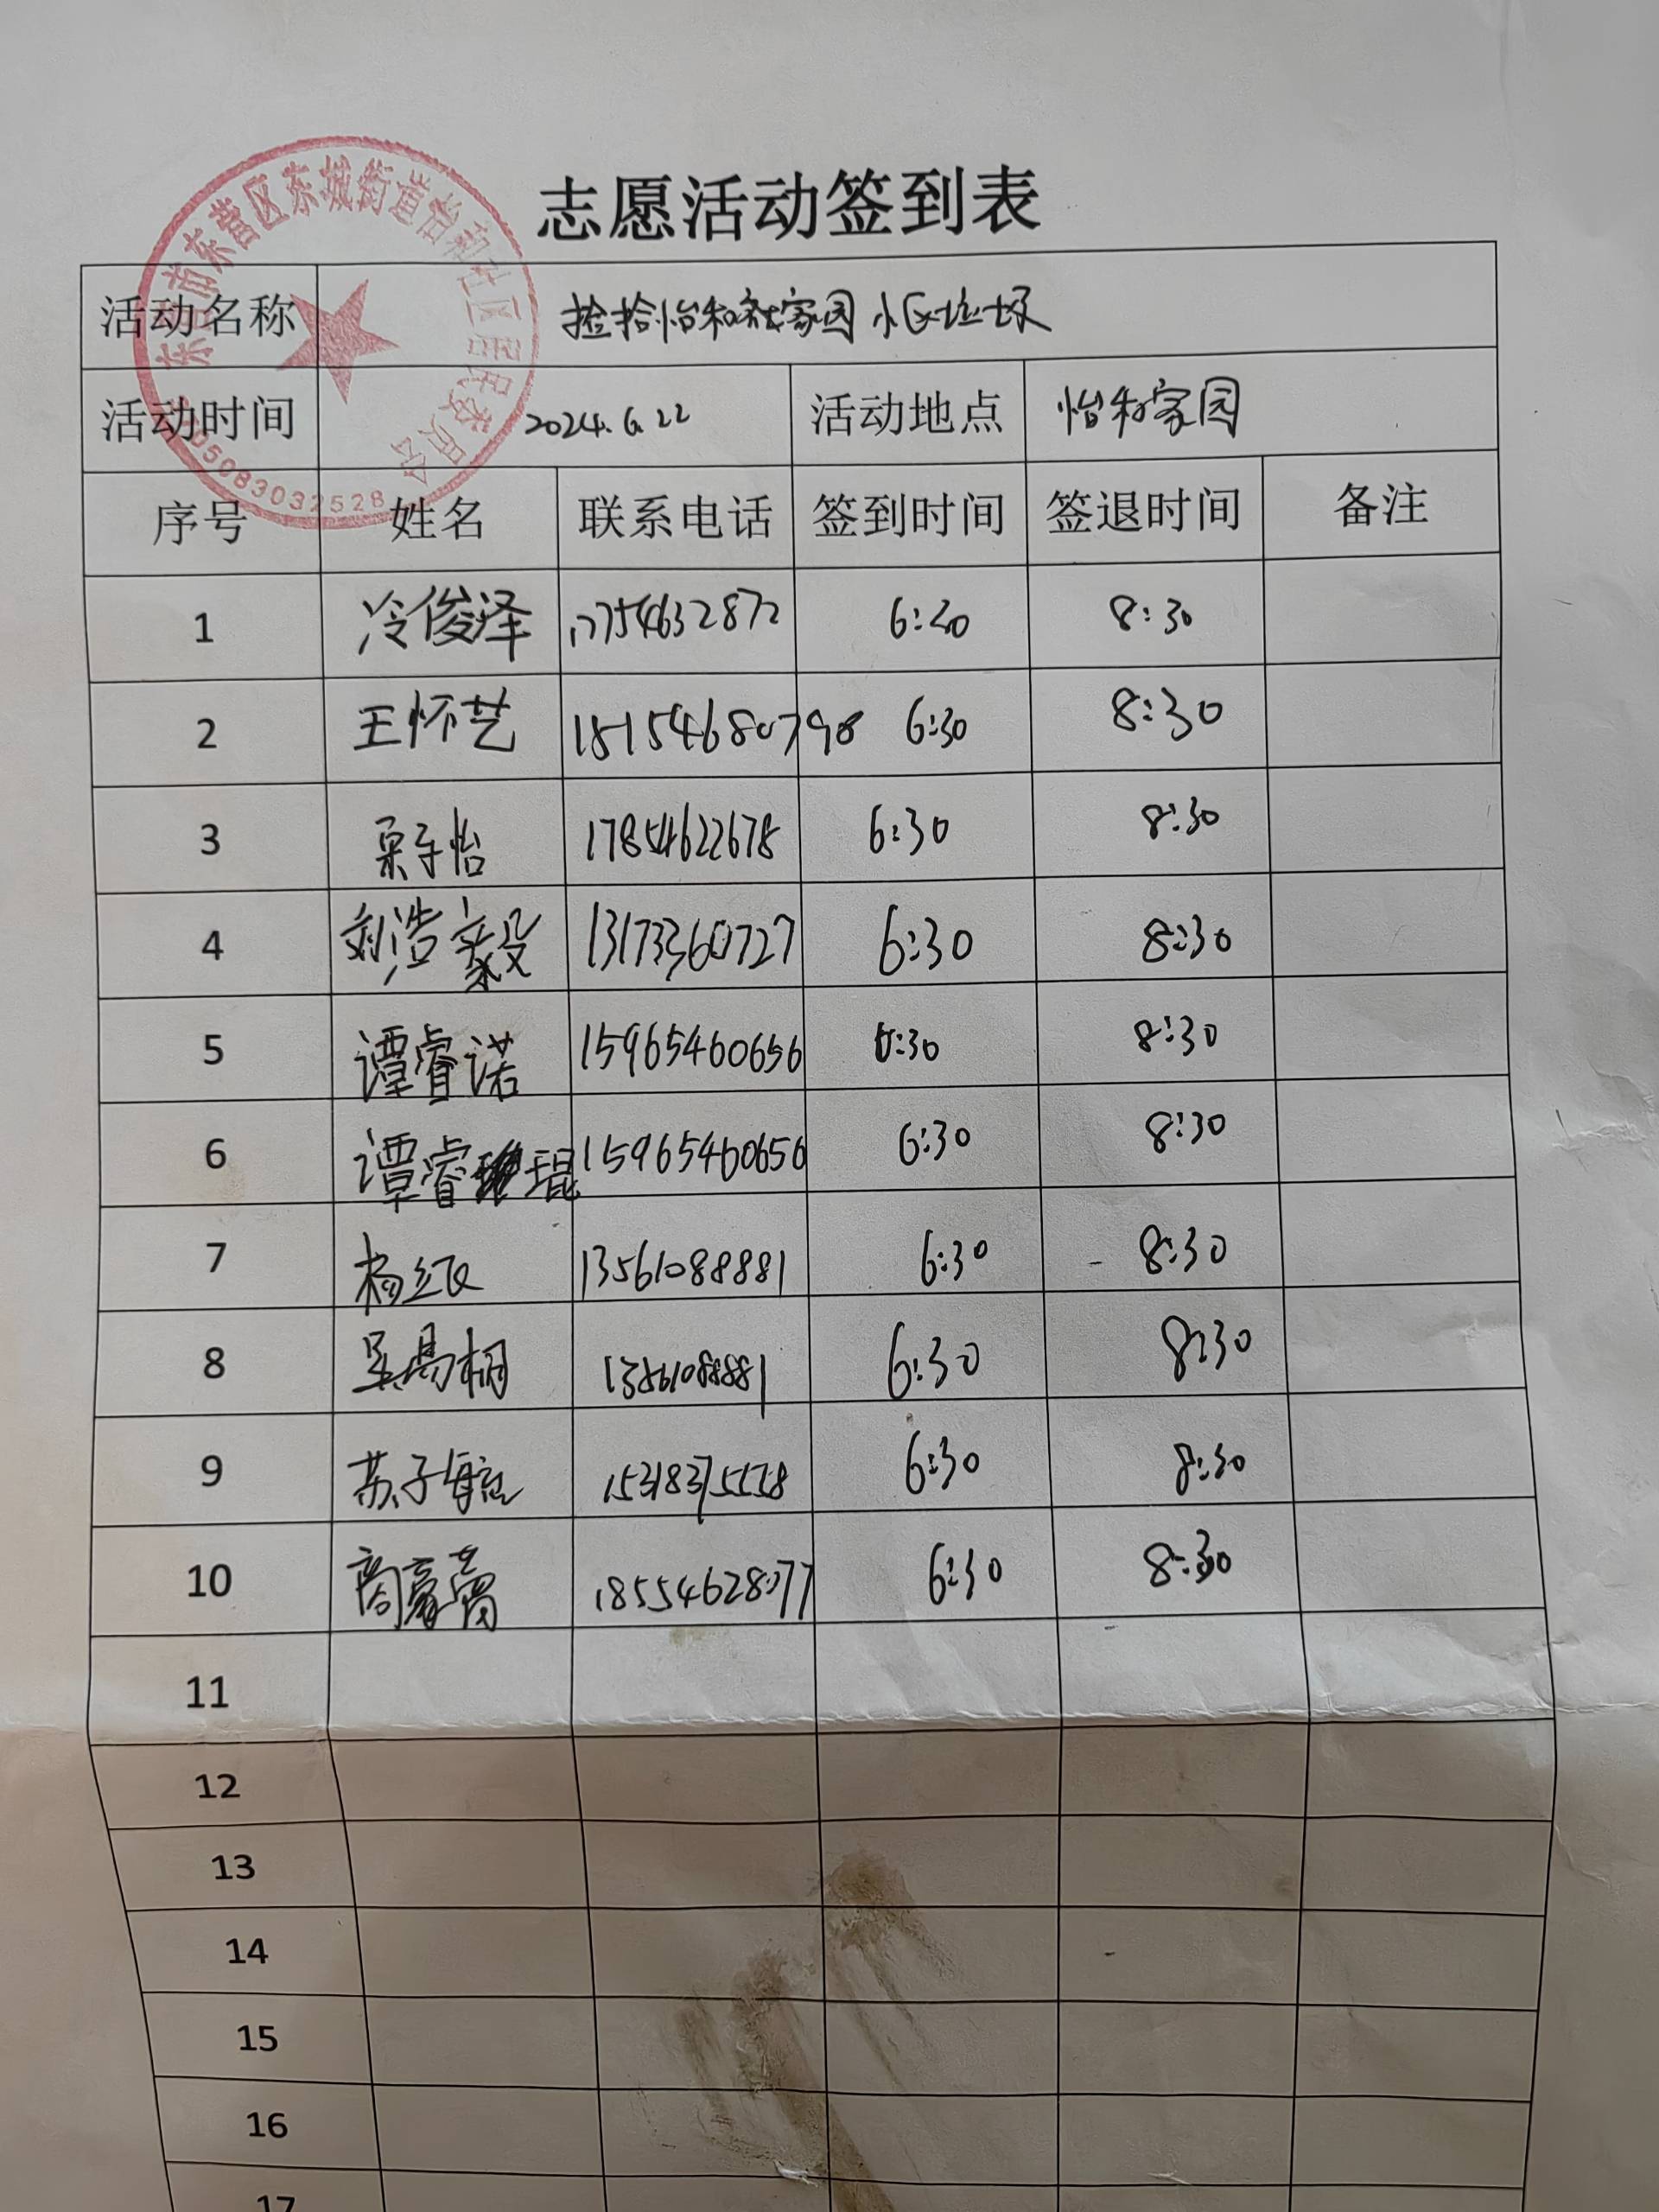 志愿活动签到表
东营市东营区东城街道怡和社区居民委员会
3705083032528
活动名称 捡拾怡和社家园小区垃圾
活动时间 2024.6.22 活动地点 怡和家园
序号 姓名 联系电话 签到时间 签退时间 备注
1 冷俊泽 17754632872 6:30 8:30
2 王怀艺 6:30 8:30
3 栗子怡 17854622678 6:30 8:30
4 刘浩毅 13173360727 6:30 8:30
5 谭睿诺 15965460656 6:30 8:30
6 谭睿琨 15965460656 6:30 8:30
7 杨红 13561088881 6:30 8:30
8 吴易桐 13561088881 6:30 8:30
9 苏子航 15318375558 6:30 8:30
10 商 6:30 8:30
11
12
13
14
15
16
17